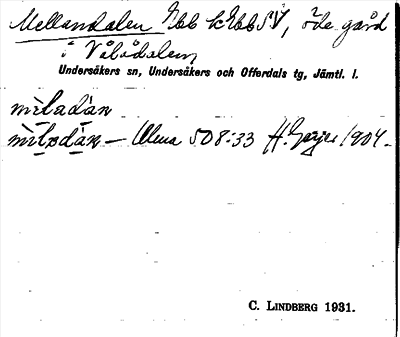 Mellandalen Ebb k EbbSV, öde gård
i Vålådalen
Undersåkers sn, Undersåkers och Offerdals tg, Jämtl. l.
mìladàn
mìladàn — Ulma 508:33 H. Geijer 1904.
C. LINDBERG 1931.